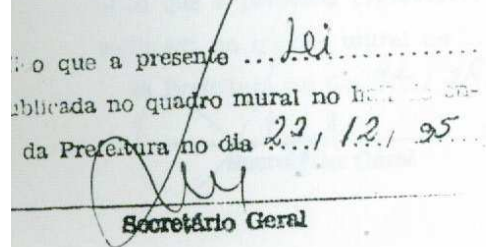 o que a presente ... Lei ...
ublicada no quadro mural no hall de en-
da Prefeitura no dia 22 / 12 / 95
Secretário Geral